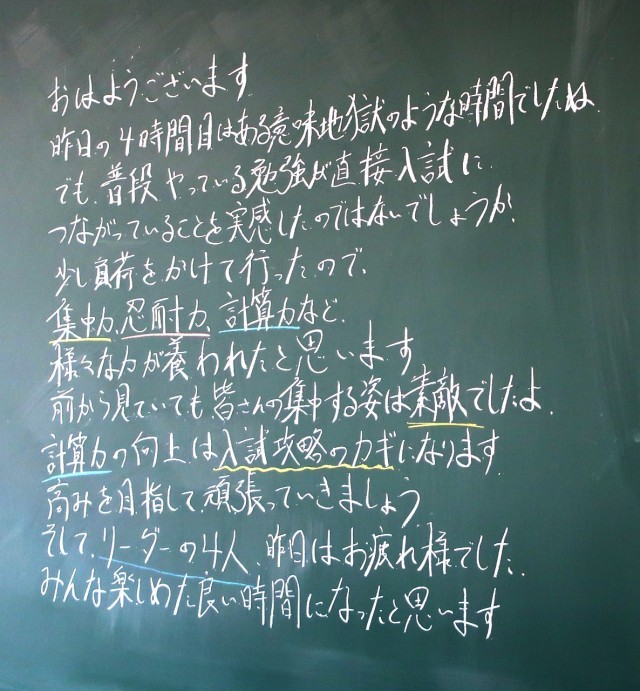 おはようございます
昨日の4時間目はある意味地獄のような時間でしたね
でも、普段やっている勉強が直接入試に
つながっていることを実感したのではないでしょうか
少し負荷をかけて行ったので、
集中力、忍耐力、計算力など、
様々な力が養われたと思います
前から見ていても、皆さんの集中する姿は素敵でしたよ
計算力の向上は入試攻略のカギになります
高みを目指して頑張っていきましょう
そして、リーダーの4人、昨日はお疲れ様でした
みんな楽しめた良い時間になったと思います